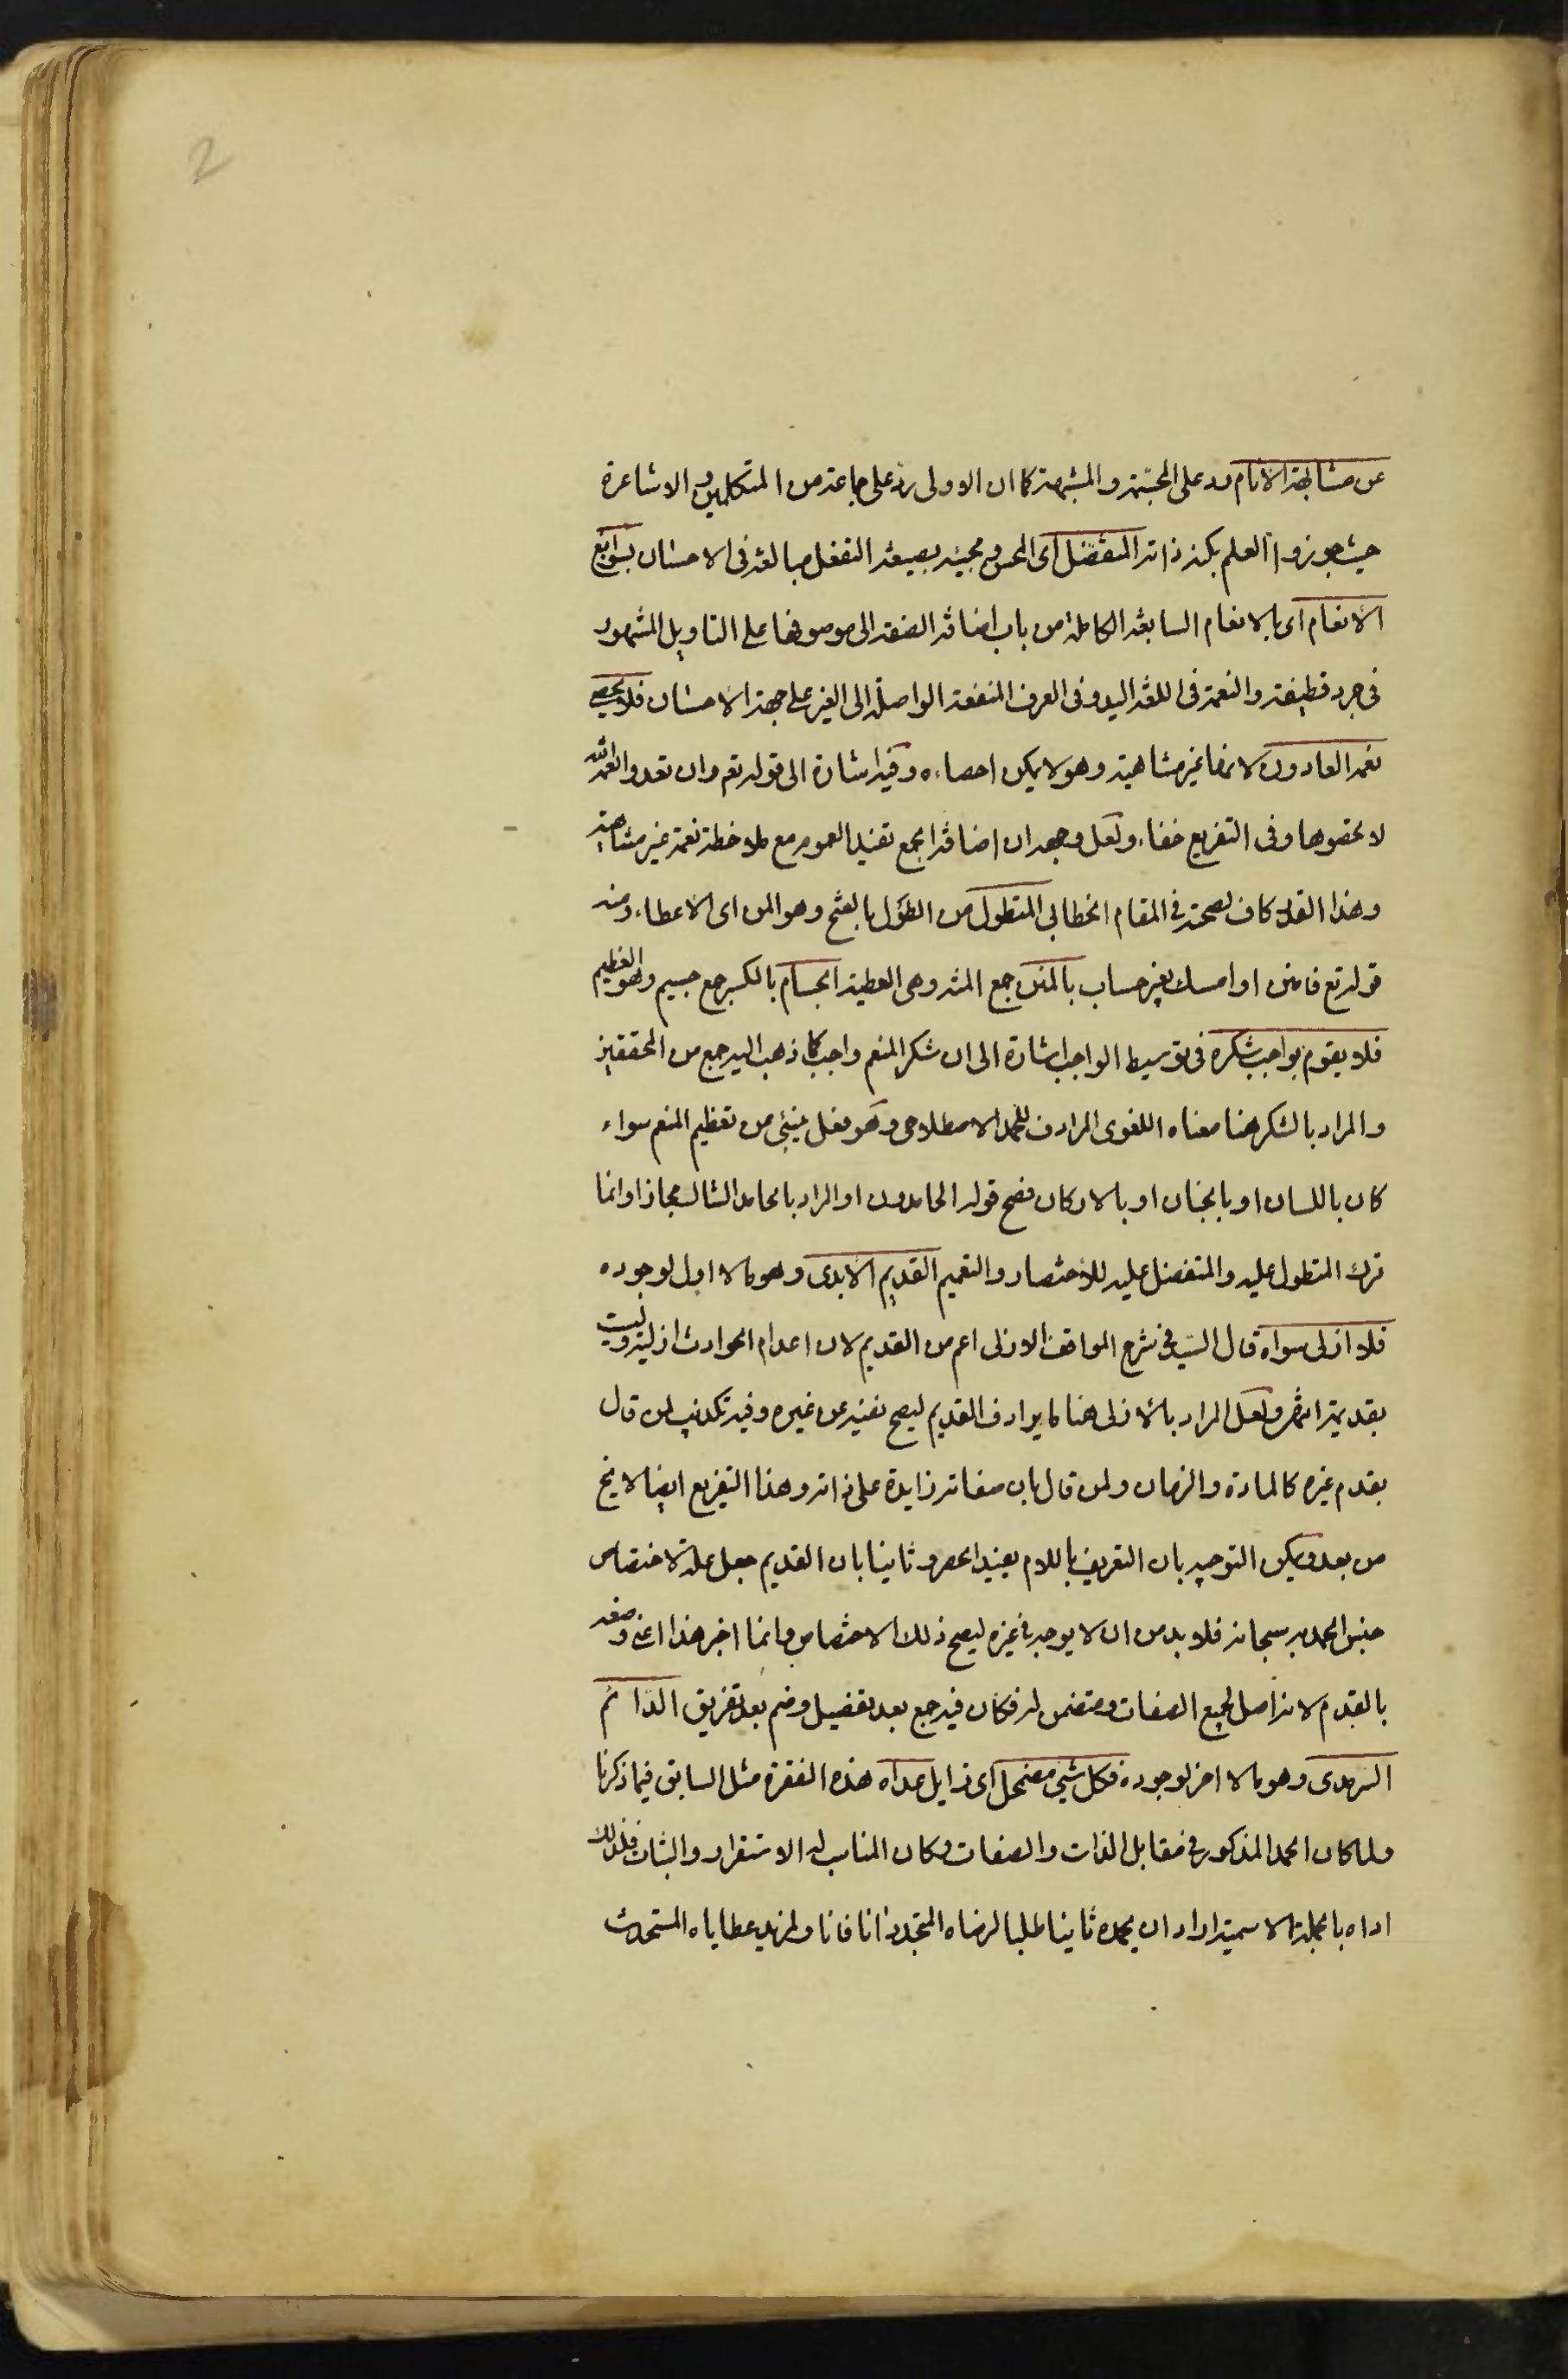 2
عن مشابهة الانام رد على المجسّمة والمشبهة كما ان الاولى ردّ على جماعة من المتكلمين والاشاعرة
حيث جوزوا العلم بكنه ذاته المتفضل اى المحسن ومجيئه بصيغة التفعل مبالغة فى الاحسان بسوابغ
الانعام اى بالانعام السابغة الكاملة من باب اضافة الصفة الى موصوفها على التاويل المشهور
فى جرد قطيفة والنعمة فى اللغة اليد وفى العرف المنفعة الواصلة الى الغير على جهة الاحسان فلا يحصى
نعمه العادون لانها غير متناهية وهو لا يمكن احصاءه وفيه اشارة الى قوله تعم وان تعدوا نعمة الله
لا تحصوها وفى التفريع خفاء ولعل وجهه ان اضافة الجمع تفيد العموم مع ملاحظة نعمة غير متناهية
وهذا القدر كاف لصحته فى المقام الخطابى المتطول من الطَول بالفتح وهو المن اى الاعطاء ومنه
قوله تع فامنن او امسك بغير حساب بالمنن جمع المنة وهى العطية الجسام بالكسر جمع جسيم وهو العظيم
فلا يقوم بواجب شكره فى توسيط الواجب اشارة الى ان شكر المنعم واجب كما ذهب اليه جمع من المحققين
والمراد بالشكر هنا معناه اللغوى المرادف للحمد الاصطلاحى وهو فعل ينبئ من تعظيم المنعم سواء
كان باللسان او بالجنان او بالاركان فصح قوله الحامدون او المراد بالحامد الشاكر مجازا وانما
ترك المتطول عليه والمتفضل عليه للاختصار والتعميم القديم الابدى وهو مالا اول لوجوده
فلا ازلى سواه قال السيد فى شرح المواقف الازلى اعم من القديم لان اعدام الحوادث ازلية وليست
بقديمة انتهى ولعل المراد بالازلى هنا ما يرادف القديم ليصح نفيه عن غيره وفيه تكذيب لمن قال
بقدم غيره كالمادة والزمان ولمن قال بان صفاته زايدة على ذاته وهذا التفريع ايضا لا يخ
من بعد ويمكن التوجيه بان التعريف باللام يفيد الحصر وثانيا بان القديم جعل علة لاختصاص
جنس الحمد به سبحانه فلا بد من ان لا يوجد فى غيره ليصح ذلك الاختصاص وانما اخر هذا اعنى وصفه
بالقدم لانه اصل لجميع الصفات ومتضمن له فكان فيه جمع بعد تفصيل وضم بعد تفريق الدائم
السرمدى وهو مالا اخر لوجوده فكل شىء مضمحل اى زايل عداه هذه الفقرة مثل السابق فيما ذكرنا
ولما كان الحمد المذكور فى مقابل الذات والصفات وكان المناسب له الاستقرار والثبات فلذلك
اداه بالجملة الاسمية اراد ان يحمده ثانيا طلبا لرضاه المتجدد انا فانا ولمزيد عطاياه المستحدث